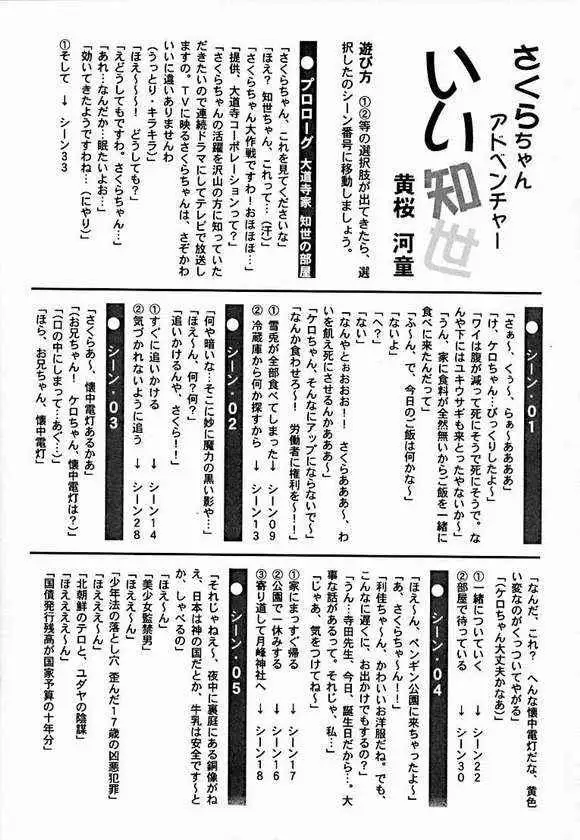 さくらちゃん
アドベンチャー
いい知世
黄桜 河童
遊び方　①②等の選択肢が出てきたら、選
択したのシーン番号に移動しましょう。
●プロローグ　大道寺家 知世の部屋
「さくらちゃん、これを見てくださいな」
「ほえ？ 知世ちゃん、これって…（汗）」
「さくらちゃん大作戦ですわ！おほほほ…」
「提供、大道寺コーポレーションって？」
「さくらちゃんの活躍を沢山の方に知っていた
だきたいので連続ドラマにしてテレビで放送し
ますの。ＴＶに映るさくらちゃんは、さぞかわ
いいに違いありませんわ
（うっとり・キラキラ）」
「ほえ〜〜〜！ どうしても？」
「えどうしてもですわ。さくらちゃん…」
「あれ…なんだか…眠たいよお…」
「効いてきたようですわね…（にやり）」
①そして　→ シーン３３
●シーン・０１
「さぁ〜、くぅ〜、らぁ〜ああああ」
「け、ケロちゃん…びっくりしたよ〜」
「ワイは腹が減って死にそうで死にそうで。な
んや下にはユキウサギも来とったやないか〜」
「うん、家に食料が全然無いからご飯を一緒に
食べに来たんだって」
「ふ〜ん、で、今日のご飯は何かな〜」
「ないよ」
「へ？」
「ない」
「なんやとぉおおお！ さくらあああ〜、わ
いを飢え死にさせるんかあああ〜」
「ケロちゃん、そんなにアップにならないで〜」
「なんか食わせろ〜！ 労働者に権利を〜！！」
①雪兎が全部食べてしまった→ シーン０９
②冷蔵庫から何か探すから　→ シーン１３
●シーン・０２
「何や暗いな…そこに妙に魔力の黒い影や…」
「ほえ〜ん、何？何？」
「追いかけるんや、さくら！！」
①すぐに追いかける　→ シーン１４
②気づかれないように追う　→ シーン２８
●シーン・０３
「さくらあ〜、懐中電灯あるかあ」
「（お兄ちゃん！ ケロちゃん、懐中電灯は？）」
「（口の中にしまって…あぐ…）」
「ほら、お兄ちゃん、懐中電灯」
「なんだ、これ？ へんな懐中電灯だな、黄色
い変なのがくっついてやがる」
「（ケロちゃん大丈夫かなあ）」
①一緒についていく　→ シーン２２
②部屋で待っている　→ シーン３０
●シーン・０４
「ほえ〜ん、ペンギン公園に来ちゃったよ〜」
「あ、さくらちゃ〜ん！！」
「利佳ちゃ〜ん、かわいいお洋服だね。でも、
こんなに遅くに、お出かけでもするの？」
「うん…寺田先生、今日、誕生日だから…。大
事な話があるって。それじゃ、私…」
「じゃあ、気をつけてね〜」
①家にまっすぐ帰る　→ シーン１７
②公園で一休みする　→ シーン１６
③寄り道して月峰神社へ　→ シーン１８
●シーン・０５
「それじゃねえ〜、夜中に裏庭にある銅像がね
え、日本は神の国だとか、牛乳は安全です〜と
か、しゃべるの」
「ほえ〜ん」
「美少女監禁男」
「ほえええ〜ん」
「少年法の落とし穴 歪んだ１７歳の凶悪犯罪」
「ほえええ〜ん」
「北朝鮮のテロと、ユダヤの陰謀」
「ほえええええ〜ん」
「国債発行残高が国家予算の十年分」